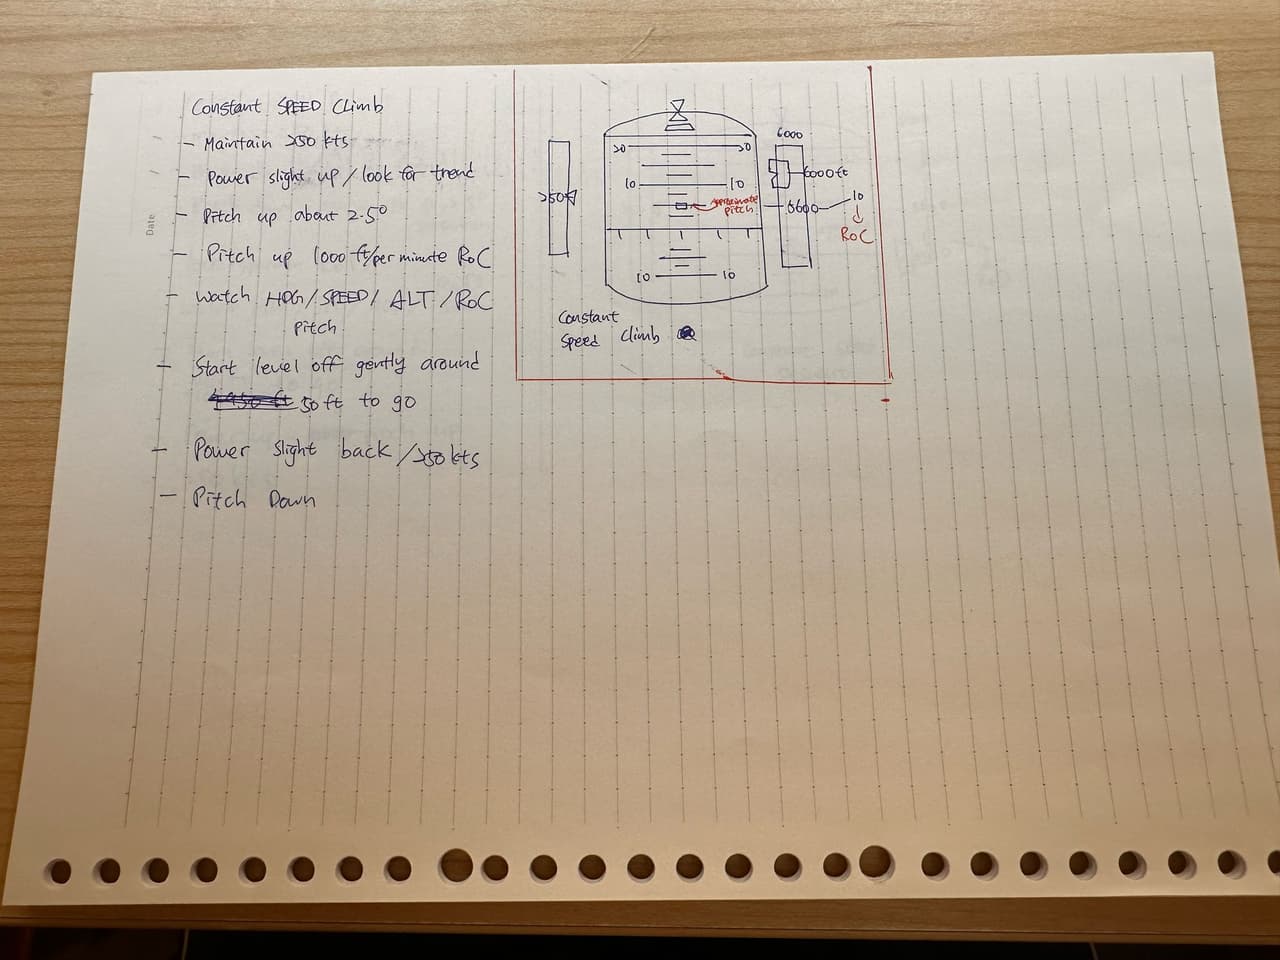 Constant SPEED Climb
- Maintain 250 kts
- Power slight up / look for trend
- Pitch up about 2.5°
- Pitch up 1000 ft/per minute RoC
- Watch HDG / SPEED / ALT / RoC
Pitch
- Start level off gently around
50ft to go
- Power slight back / 250 kts
- Pitch Down
Date
6000
20 20
6000ft
10 10
250
Approximate
pitch
10
RoC
10 10
Constant
Speed Climb